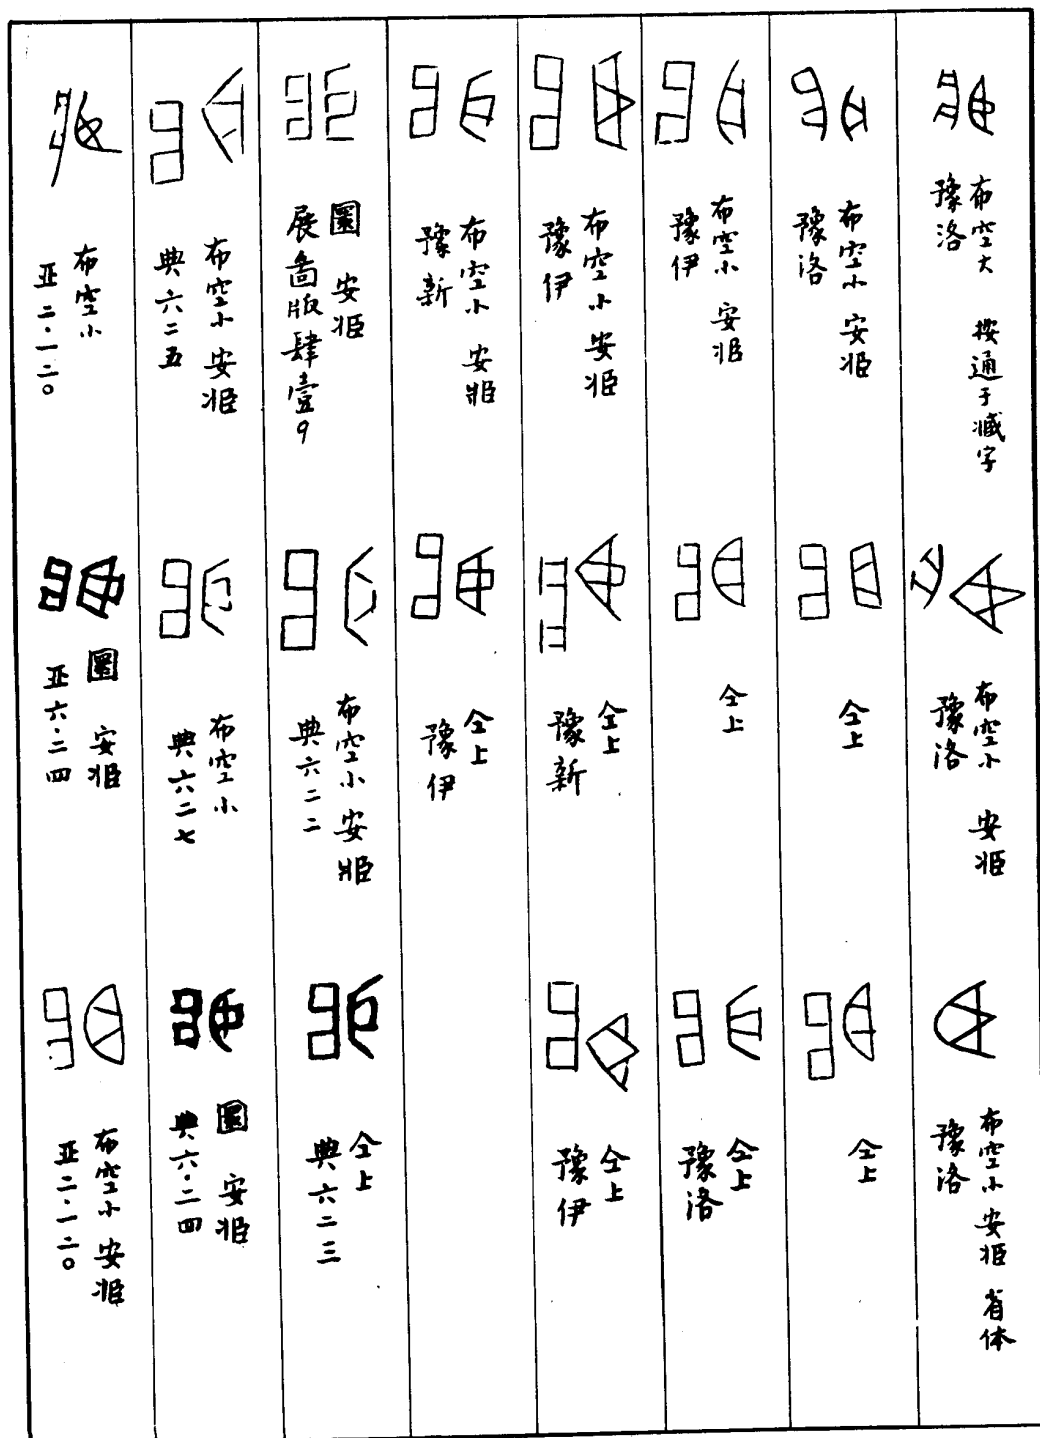 布空大　按通于臧字
豫洛
布空小　安⿰爿臣
豫洛
布空小　安⿰爿臣　省体
豫洛
布空小　安⿰爿臣
豫洛
仝上
仝上
布空小　安⿰爿臣
豫伊
仝上
仝上
豫洛
布空小　安⿰爿臣
豫伊
仝上
豫新
仝上
豫伊
布空小　安⿰爿臣
豫新
仝上
豫伊
圜　安⿰爿臣
展啚版肆壹9
布空小　安⿰爿臣
典六二二
仝上
典六二三
布空小　安⿰爿臣
典六二五
布空小
典六二七
圜　安⿰爿臣
典六·二四
布空小
亚二·一二〇
圜　安⿰爿臣
亚六·二四
布空小　安⿰爿臣
亚二·一二〇